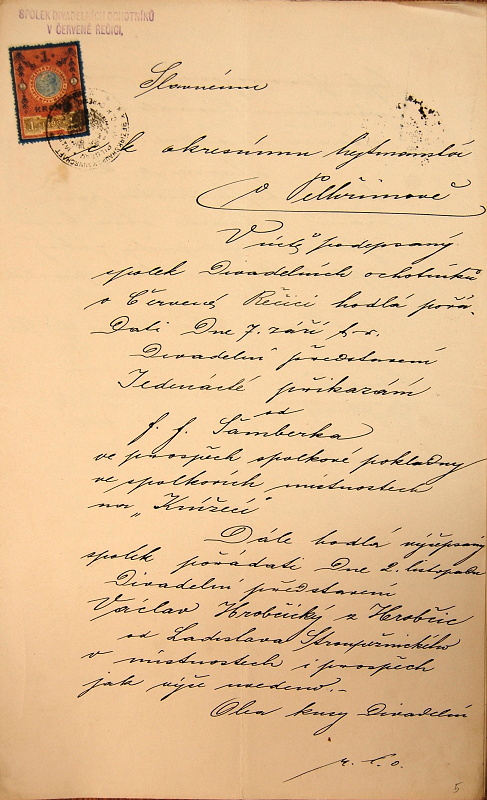 SPOLEK DIVADELNÍCH OCHOTNÍKŮ
V ČERVENÉ ŘEČICI.
1
KRONE
Slavnému
c. k. okresnímu hejtmanství
v Pelhřimově
V úctě podepsaný
spolek Divadelních ochotníků
v Červené Řečici hodlá pořá-
dati dne 7. září t. r.
Divadelní představení
Jedenácté přikázání
od
F. F. Šamberka
ve prospěch spolkové pokladny
ve spolkových místnostech
na „Knížecí“
Dále hodlá výšepsaný
spolek pořádati dne 2. listopadu
Divadelní představení
Václav Hrobčický z Hrobčic
od Ladislava Stroupežnického
v místnostech i prospěch
jak výše uvedeno.-
Oba kusy Divadelní
5